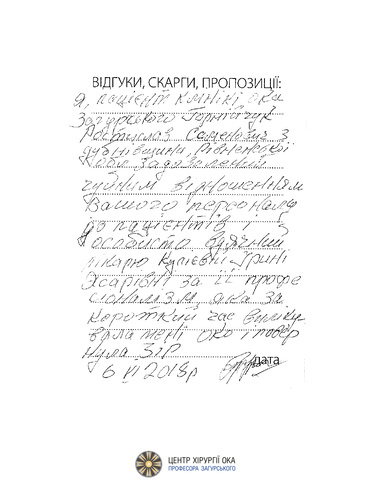 ВІДГУКИ, СКАРГИ, ПРОПОЗИЦІЇ:
Я, пацієнт клінікі ока
Загурського
Ростислав Семенович з
дубнівщини Рівненської
обл. задоволений
чуйним відношенням
Вашого персоналу
до пацієнтів і
особисто вдячний
лікарю Ірині
за її профе
сіоналізм, яка за
короткий час виліку
вала мені око і повер
нула зір
Дата
6 VI 2018р
ЦЕНТР ХІРУРГІЇ ОКА
ПРОФЕСОРА ЗАГУРСЬКОГО